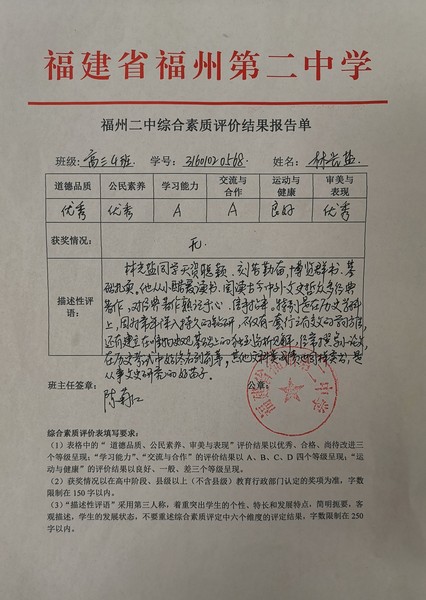 福建省福州第二中学
福州二中综合素质评价结果报告单
班级: 高三4班. 学号: 31601020568. 姓名: 林长盐
道德品质 公民素养 学习能力 交流与合作 运动与健康 审美与表现
优秀 优秀 A A 良好 优秀
获奖情况: 无.
描述性评语:
同学天资聪颖、刻苦勤奋、博览群书、基
础扎实。他从小酷爱读书、阅读古今中外文史哲众多经典
著作,对名著熟记于心、信手拈来。特别是在历史学科
上,因对
在历史考试中经常名列前茅,其他文科类成绩也同样突出,是
从事文史研究的好苗子。
班主任签章: 公章:
福建省福州第二中学
综合素质评价表填写要求:
(1)表格中的“道德品质、公民素养、审美与表现”评价结果以优秀、合格、尚待改进三
个等级呈现;“学习能力”、“交流与合作”的评价结果以 A、B、C、D 四个等级呈现;“运
动与健康”的评价结果以良好、一般、差三个等级呈现。
(2)获奖情况以在高中阶段、县级以上(不含县级)教育行政部门认定的奖项为准,字数
限制在 150 字以内。
(3)“描述性评语”采用第三人称,着重突出学生的个性、特长和发展特点,简明扼要,客
观描述,学生的发展状态,不要重述综合素质评定中六个维度的评定结果,字数限制在 250
字以内。